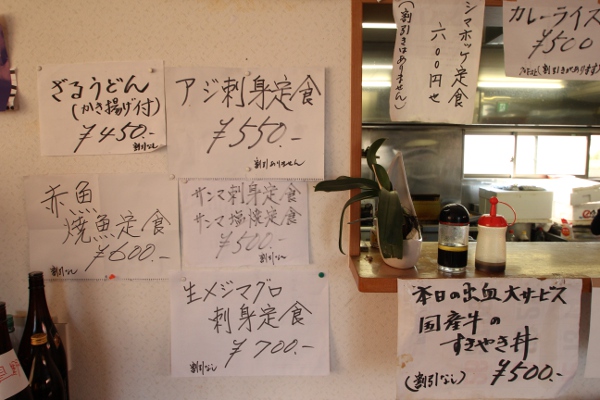 ざるうどん
(かき揚げ付)
¥450.-
割引なし
アジ刺身定食
¥550.-
割引ありません
シマホッケ定食
六〇〇円也
(割引きはありません)
カレーライス
¥500
赤魚
焼魚定食
¥600.-
割引なし
サンマ刺身定食
サンマ塩焼定食
¥500.-
割引なし
生メジマグロ
刺身定食
¥700.-
割引なし
本日の出血大サービス
国産牛の
すきやき丼
(割引なし) ¥500.-